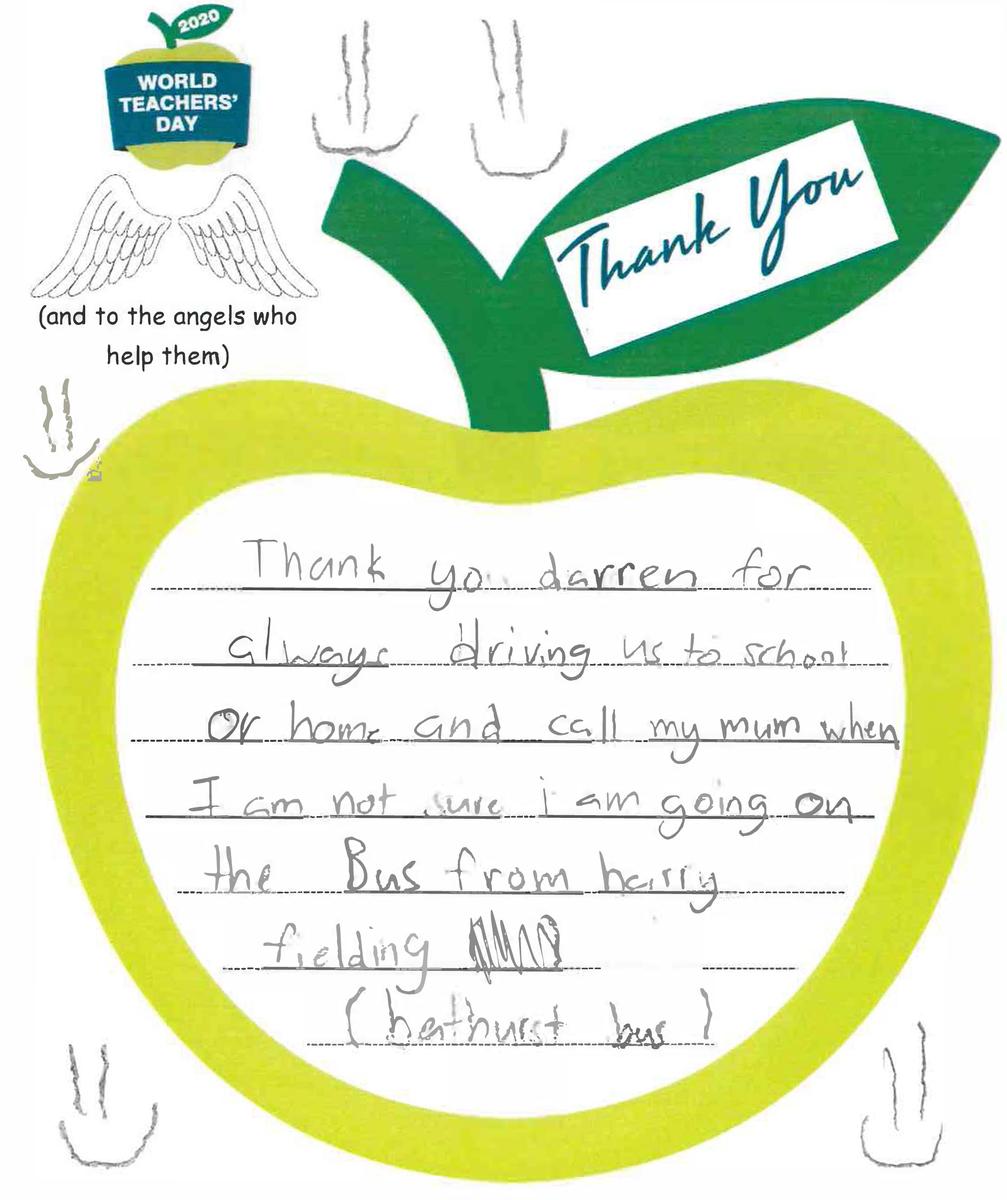 2020
WORLD
TEACHERS'
DAY
Thank You
(and to the angels who
help them)
Thank yo darren for
always driving us to school
or home and call my mum when
I am not sure i am going on
the Bus from harry
fielding
(bathurst bus)